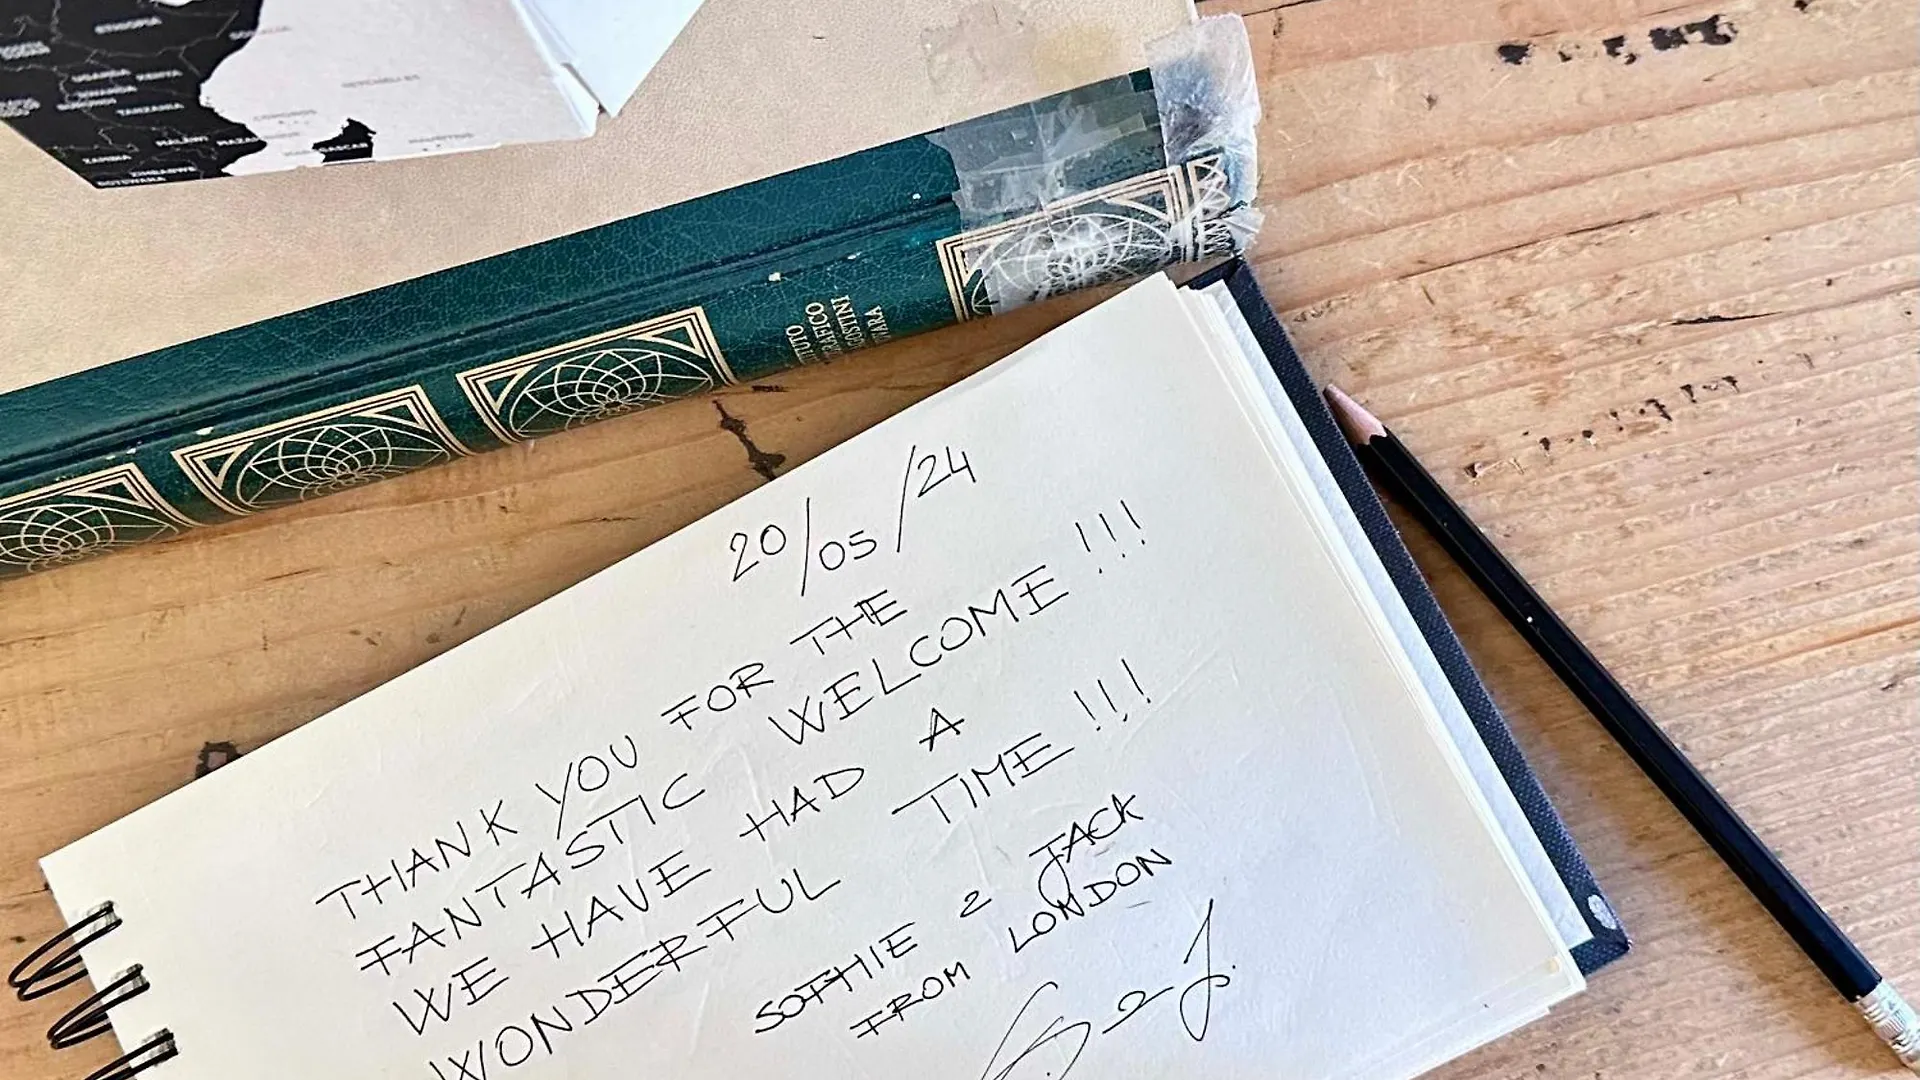 ETHIOPIA
UGANDA KENYA
TANZANIA
MALAWI
ZAMBIA
ZIMBABWE
BOTSWANA
GRAFICO
AGOSTINI
20/05/24
THANK YOU FOR THE
FANTASTIC WELCOME!!!
WE HAVE HAD A
WONDERFUL TIME!!!
SOPHIE & JACK
FROM LONDON